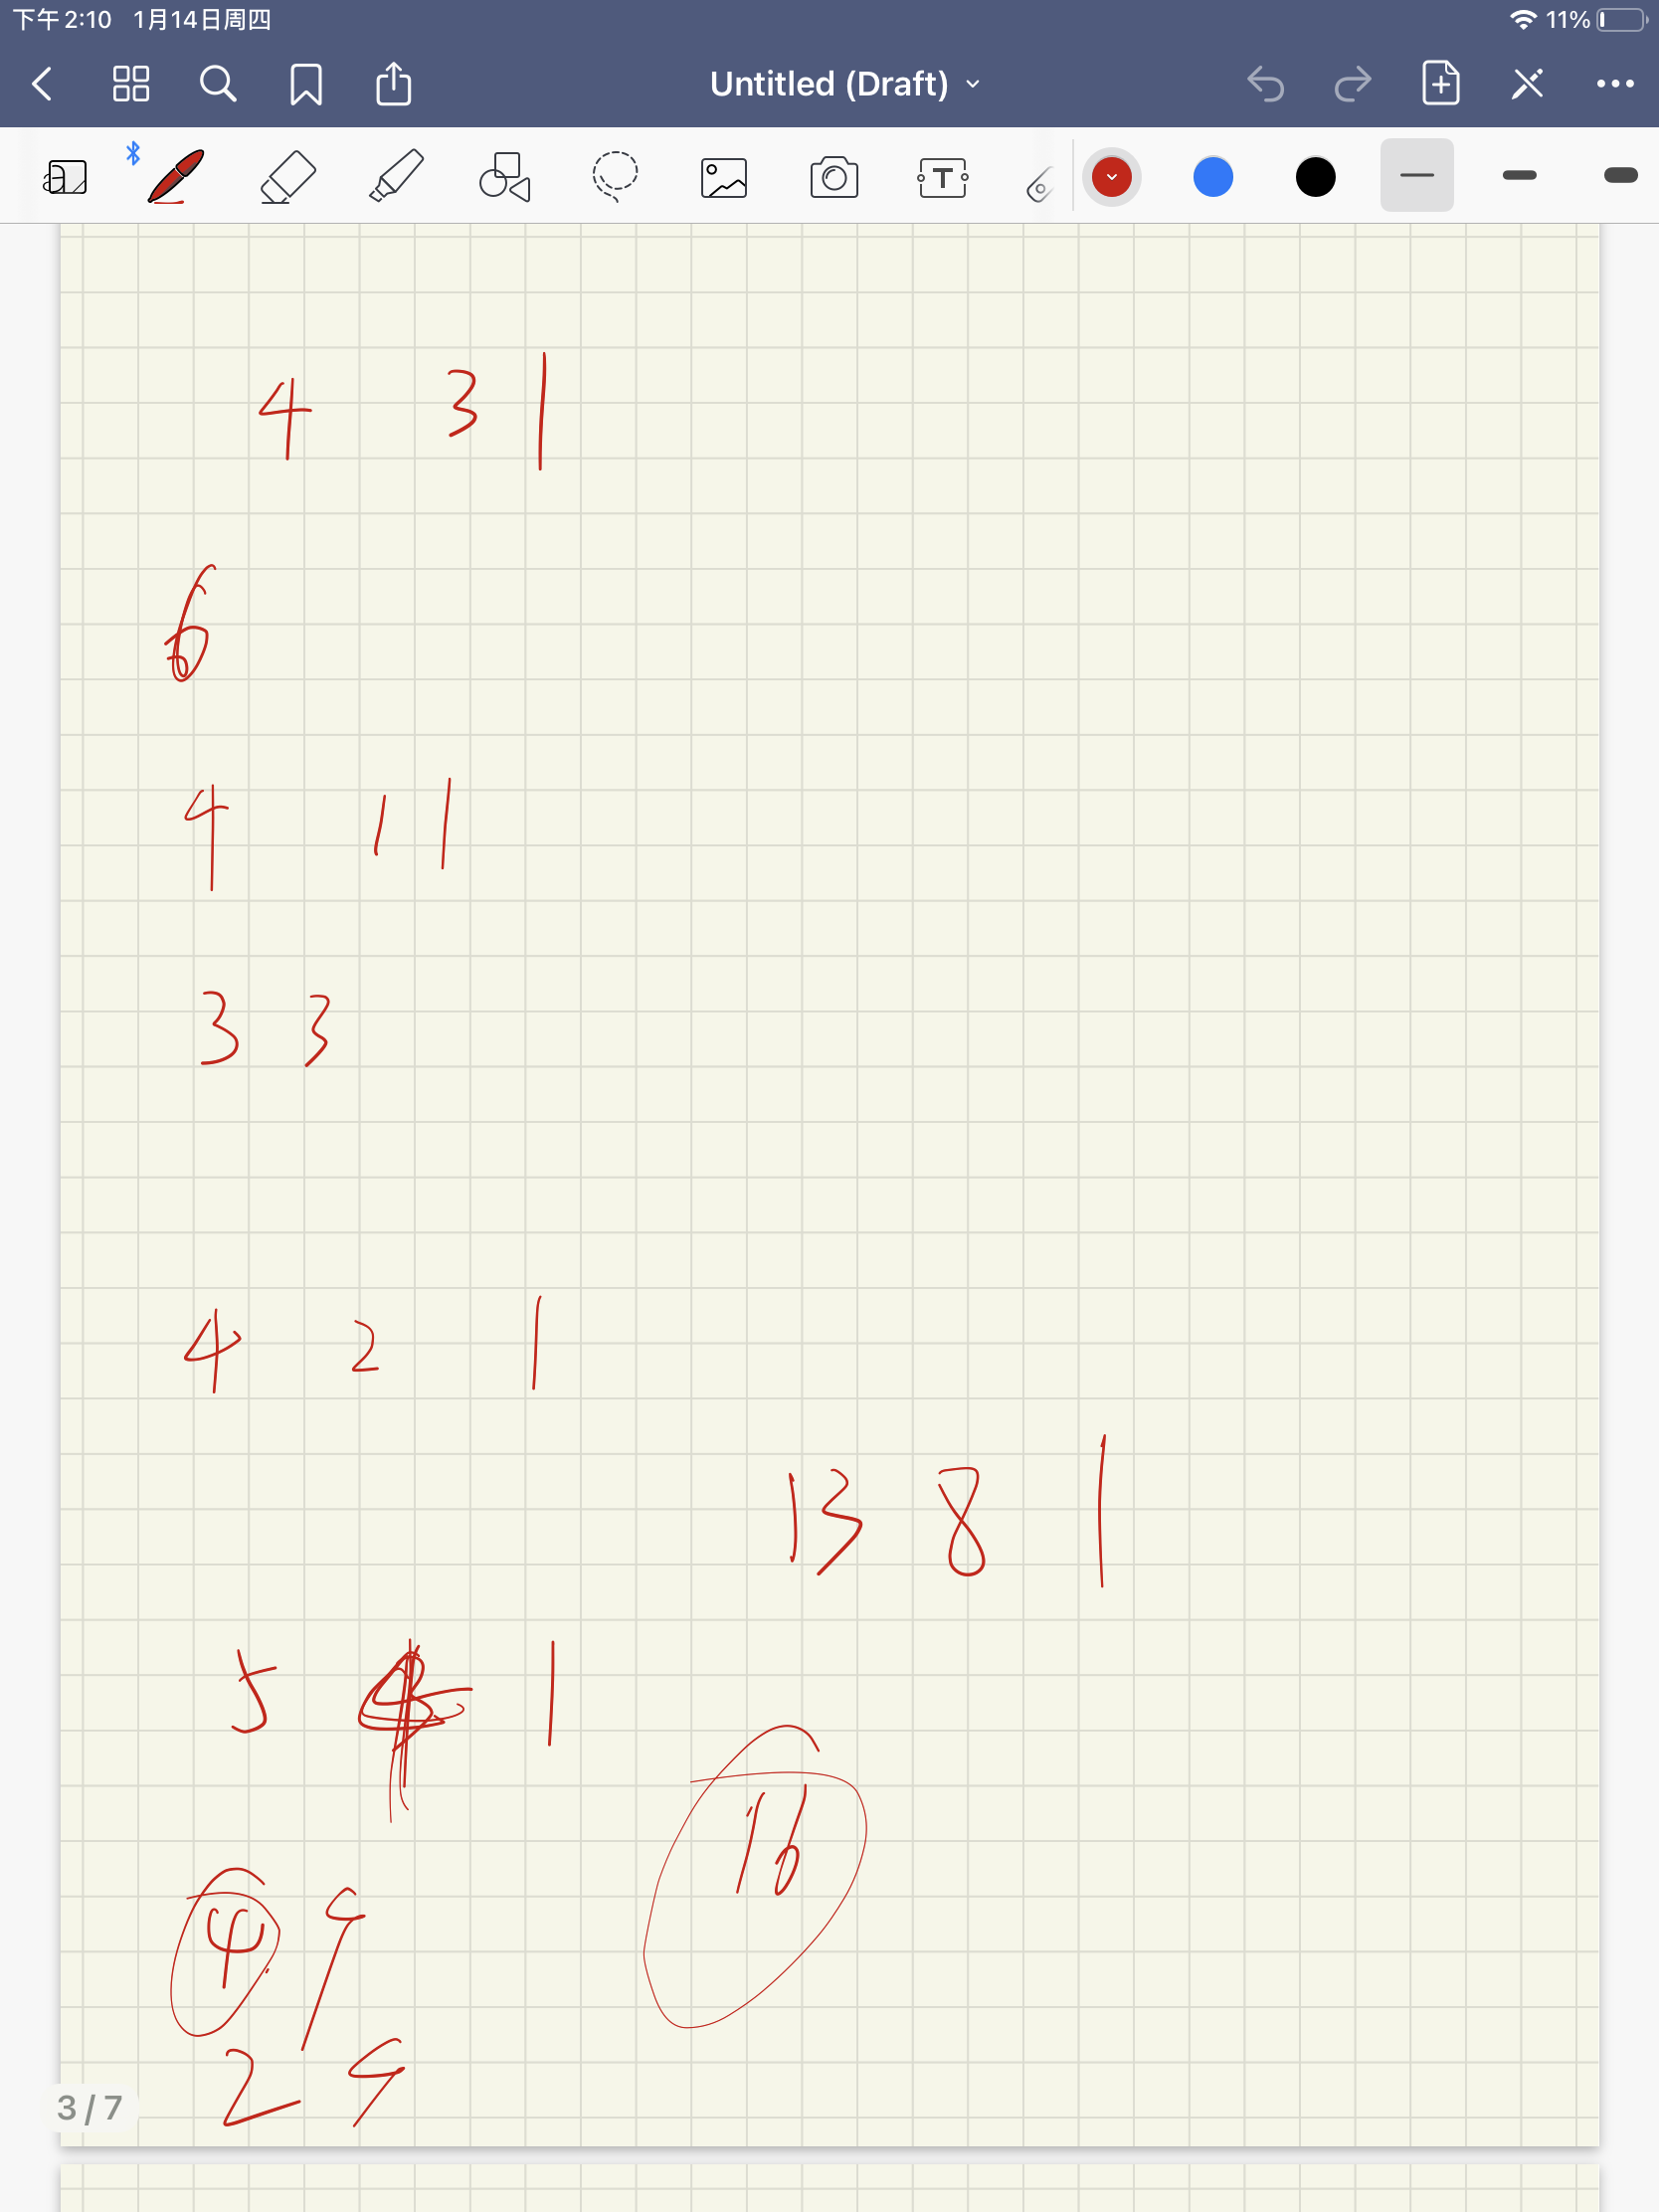 下午2:10 1月14日周四 11%
Untitled (Draft)
T
4 3 1
6
4 1 1
3 3
4 2 1
13 8 1
5 1
16
4 9
2 9
3 / 7